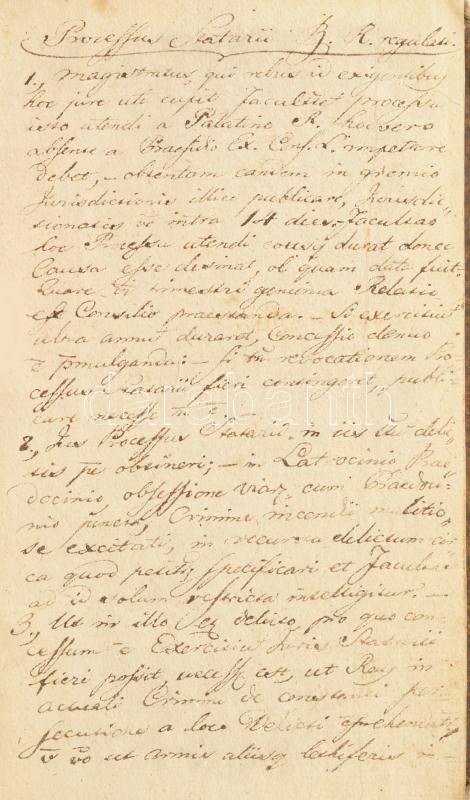 Processus Statarii B. R. regulati.
1., Magistratus, qui rebus id exigentibus
hoc jure uti cupit facultatem processu
isto utendi a Palatino R. hoc vero
absente a Praesidio Ex. Cons. L. impetrare
debet, – obtentam eandem in gremio
Jurisdictionis illico publicare, Jurisdic-
tionatis vo intra 14 dies. Facultas
hoc Processu utendi eousq durat donec
Causa esse desinat, ob quam data fuit.
Quare trimestri genuina Relatio
est Consilio praestanda. – Si exercitium
ultra annum duraret, Concessio denuo
e pmulganda: – Si tn revocationem Pro-
cessus Statarii fieri contingeret, publi-
care necesse
2., Jus Processus Statarii in iis tn deli-
ctis pe obtineri; – in Latrocinio
docinio obsessione viar. cum Praedo-
nio junctæ, Crimine incendii malitio-
se excitati, in recursu delictum cir-
ca quod petitq specificari et Facultas
ad id solum restricta intelligitur. –
3., Ut in illo delicto, pro quo con-
cessum e Exercitium Juris Statarii
fieri possit, necesse est, ut Reus in
actuali Crimine de constanti per-
secutione a loco Delicti
vo ut armis aliisq lethiferis in-
darabanth